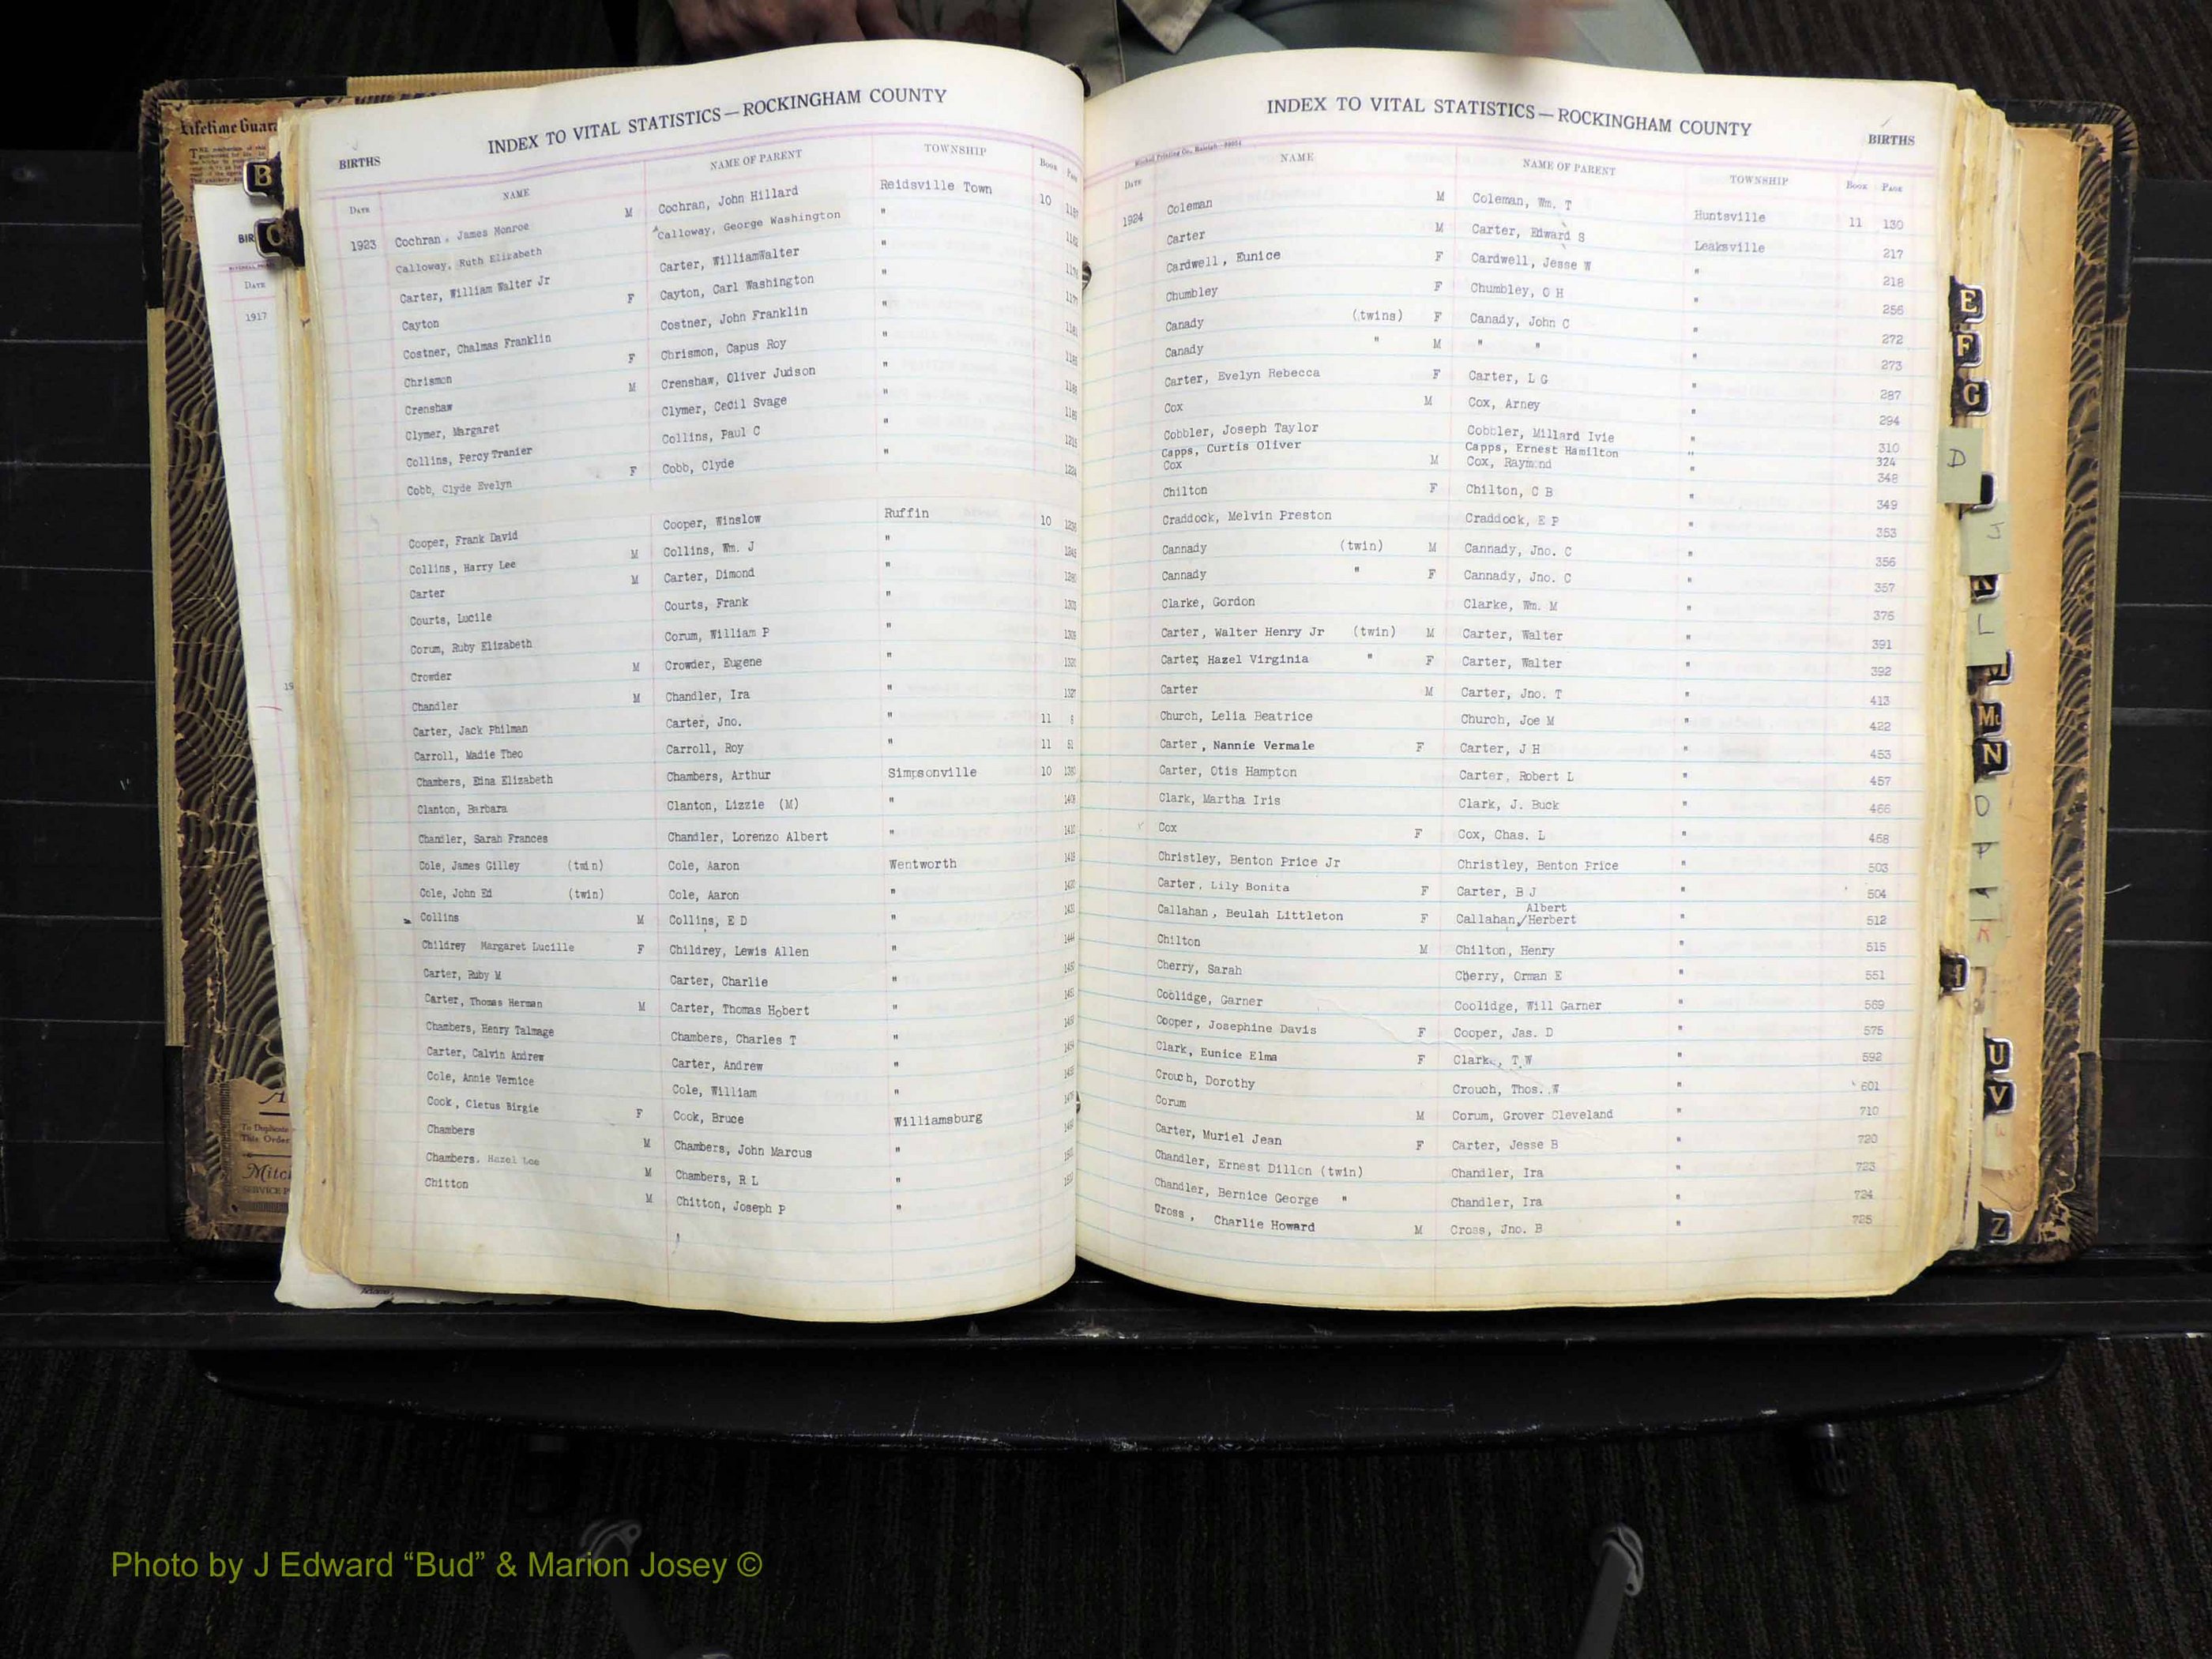 Lifetime Guar
B
C
BIR
DATE
1917
19
To Duplicate
This Order
Mitc
SERVICE
INDEX TO VITAL STATISTICS — ROCKINGHAM COUNTY
BIRTHS
DATE NAME NAME OF PARENT TOWNSHIP BOOK PAGE
1923 Cochran, James Monroe M Cochran, John Hillard Reidsville Town 10
Calloway, Ruth Elizabeth Calloway, George Washington "
Carter, William Walter Jr Carter, WilliamWalter "
Cayton F Cayton, Carl Washington "
Costner, Chalmas Franklin Costner, John Franklin "
Chrismon F Chrismon, Capus Roy "
Crenshaw M Crenshaw, Oliver Judson "
Clymer, Margaret Clymer, Cecil Svage "
Collins, Percy Tranier Collins, Paul C "
Cobb, Clyde Evelyn F Cobb, Clyde "
Cooper, Frank David Cooper, Winslow Ruffin 10
Collins, Harry Lee M Collins, Wm. J "
Carter M Carter, Dimond "
Courts, Lucile Courts, Frank "
Corum, Ruby Elizabeth Corum, William P "
Crowder M Crowder, Eugene "
Chandler M Chandler, Ira "
Carter, Jack Philman Carter, Jno. " 11
Carroll, Madie Theo Carroll, Roy " 11
Chambers, Edna Elizabeth Chambers, Arthur Simpsonville 10
Clanton, Barbara Clanton, Lizzie (M) "
Chandler, Sarah Frances Chandler, Lorenzo Albert "
Cole, James Gilley (twin) Cole, Aaron Wentworth
Cole, John Ed (twin) Cole, Aaron "
Collins M Collins, E D "
Childrey Margaret Lucille F Childrey, Lewis Allen "
Carter, Ruby M Carter, Charlie "
Carter, Thomas Herman M Carter, Thomas Hobert "
Chambers, Henry Talmage Chambers, Charles T "
Carter, Calvin Andrew Carter, Andrew "
Cole, Annie Vernice Cole, William "
Cook, Cletus Birgie F Cook, Bruce Williamsburg
Chambers M Chambers, John Marcus "
Chambers. Hazel Lee M Chambers, R L "
Chitton M Chitton, Joseph P "
INDEX TO VITAL STATISTICS — ROCKINGHAM COUNTY
BIRTHS
DATE NAME NAME OF PARENT TOWNSHIP BOOK PAGE
1924 Coleman M Coleman, Wm. T Huntsville 11 130
Carter M Carter, Edward S Leaksville 217
Cardwell, Eunice F Cardwell, Jesse W " 218
Chumbley F Chumbley, O H " 256
Canady (twins) F Canady, John C " 272
Canady " M " " " 273
Carter, Evelyn Rebecca F Carter, L G " 287
Cox M Cox, Arney " 294
Cobbler, Joseph Taylor Cobbler, Millard Ivie " 310
Capps, Curtis Oliver Capps, Ernest Hamilton " 324
Cox M Cox, Raymond " 348
Chilton F Chilton, C B " 349
Craddock, Melvin Preston Craddock, E P " 353
Cannady (twin) M Cannady, Jno. C " 356
Cannady " F Cannady, Jno. C " 357
Clarke, Gordon Clarke, Wm. M " 376
Carter, Walter Henry Jr (twin) M Carter, Walter " 391
Carter, Hazel Virginia " F Carter, Walter " 392
Carter M Carter, Jno. T " 413
Church, Lelia Beatrice Church, Joe M " 422
Carter, Nannie Vermale F Carter, J H " 453
Carter, Otis Hampton Carter, Robert L " 457
Clark, Martha Iris Clark, J. Buck " 466
Cox F Cox, Chas. L " 468
Christley, Benton Price Jr Christley, Benton Price " 503
Carter, Lily Bonita F Carter, B J " 504
Albert
Callahan, Beulah Littleton F Callahan,/Herbert " 512
Chilton M Chilton, Henry " 515
Cherry, Sarah Cherry, Orman E " 551
Coolidge, Garner Coolidge, Will Garner " 569
Cooper, Josephine Davis F Cooper, Jas. D " 575
Clark, Eunice Elma F Clark, T W " 592
Crouch, Dorothy Crouch, Thos. W " 601
Corum M Corum, Grover Cleveland " 710
Carter, Muriel Jean F Carter, Jesse B " 720
Chandler, Ernest Dillon (twin) Chandler, Ira " 723
Chandler, Bernice George " Chandler, Ira " 724
Cross, Charlie Howard M Cross, Jno. B " 725
E
F
G
D
J
K
L
M
Mc
N
O
P
R
H
U
V
W
Z
Photo by J Edward “Bud” & Marion Josey ©